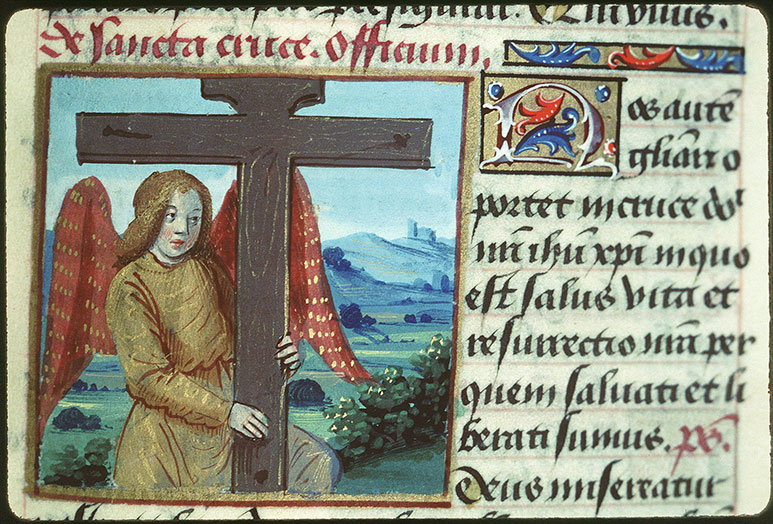 De sancta cruce. Officium.
Nos autē
gliari o
portet in cruce do
nri ihu xpi in quo
est salus vita et
resurrectio nra per
quem saluati et li
berati sumus. ps.
Deus misereatur